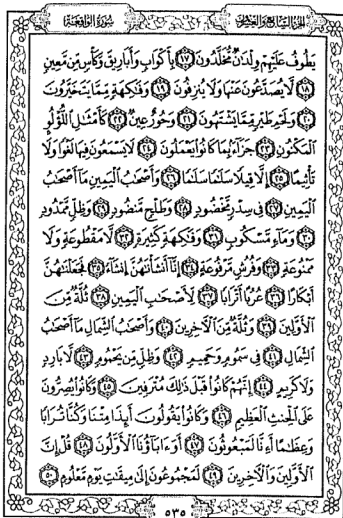 الجزء السابع والعشرون سورة الواقعة
يَطُوفُ عَلَيْهِمْ وِلْدَٰنٌ مُّخَلَّدُونَ ١٧ بِأَكْوَابٍ وَأَبَارِيقَ وَكَأْسٍ مِّن مَّعِينٍ
١٨ لَّا يُصَدَّعُونَ عَنْهَا وَلَا يُنزِفُونَ ١٩ وَفَٰكِهَةٍ مِّمَّا يَتَخَيَّرُونَ
٢٠ وَلَحْمِ طَيْرٍ مِّمَّا يَشْتَهُونَ ٢١ وَحُورٌ عِينٌ ٢٢ كَأَمْثَٰلِ اللُّؤْلُؤِ
الْمَكْنُونِ ٢٣ جَزَآءًۢ بِمَا كَانُوا يَعْمَلُونَ ٢٤ لَا يَسْمَعُونَ فِيهَا لَغْوًا وَلَا
تَأْثِيمًا ٢٥ إِلَّا قِيلًا سَلَٰمًا سَلَٰمًا ٢٦ وَأَصْحَٰبُ الْيَمِينِ مَآ أَصْحَٰبُ
الْيَمِينِ ٢٧ فِي سِدْرٍ مَّخْضُودٍ ٢٨ وَطَلْحٍ مَّنضُودٍ ٢٩ وَظِلٍّ مَّمْدُودٍ
٣٠ وَمَآءٍ مَّسْكُوبٍ ٣١ وَفَٰكِهَةٍ كَثِيرَةٍ ٣٢ لَّا مَقْطُوعَةٍ وَلَا
مَمْنُوعَةٍ ٣٣ وَفُرُشٍ مَّرْفُوعَةٍ ٣٤ إِنَّآ أَنشَأْنَٰهُنَّ إِنشَآءً ٣٥ فَجَعَلْنَٰهُنَّ
أَبْكَارًا ٣٦ عُرُبًا أَتْرَابًا ٣٧ لِّأَصْحَٰبِ الْيَمِينِ ٣٨ ثُلَّةٌ مِّنَ
الْأَوَّلِينَ ٣٩ وَثُلَّةٌ مِّنَ الْآخِرِينَ ٤٠ وَأَصْحَٰبُ الشِّمَالِ مَآ أَصْحَٰبُ
الشِّمَالِ ٤١ فِي سَمُومٍ وَحَمِيمٍ ٤٢ وَظِلٍّ مِّن يَحْمُومٍ ٤٣ لَّا بَارِدٍ
وَلَا كَرِيمٍ ٤٤ إِنَّهُمْ كَانُوا قَبْلَ ذَٰلِكَ مُتْرَفِينَ ٤٥ وَكَانُوا يُصِرُّونَ
عَلَى الْحِنثِ الْعَظِيمِ ٤٦ وَكَانُوا يَقُولُونَ أَئِذَا مِتْنَا وَكُنَّا تُرَابًا
وَعِظَٰمًا أَءِنَّا لَمَبْعُوثُونَ ٤٧ أَوَءَابَآؤُنَا الْأَوَّلُونَ ٤٨ قُلْ إِنَّ
الْأَوَّلِينَ وَالْآخِرِينَ ٤٩ لَمَجْمُوعُونَ إِلَىٰ مِيقَٰتِ يَوْمٍ مَّعْلُومٍ ٥٠
٥٣٥